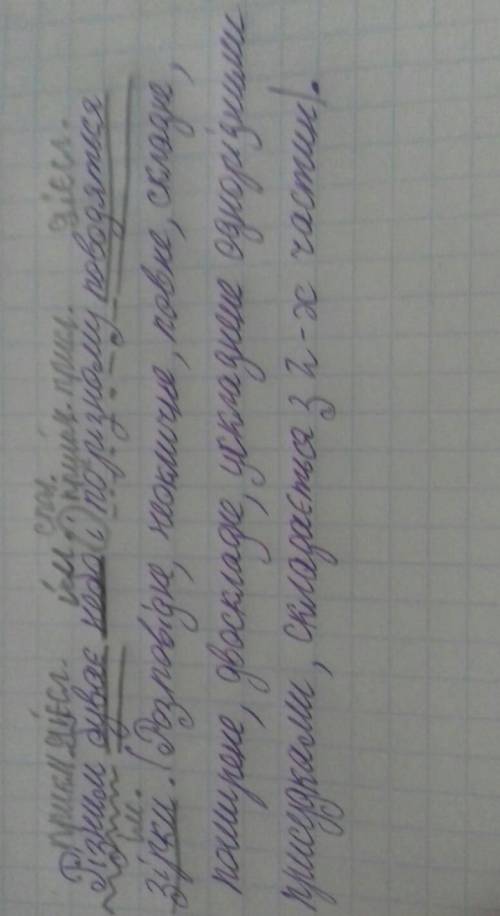 прикм. дієсл. ім. спол. прийм. прис. дієсл.
Різним буває небо (і) по різному поводяться
ім.
зірки. (Розповідне, неокличне, повне, складне,
поширене, двоскладне, ускладнене однорідними
присудками, складається з 2-х частин).